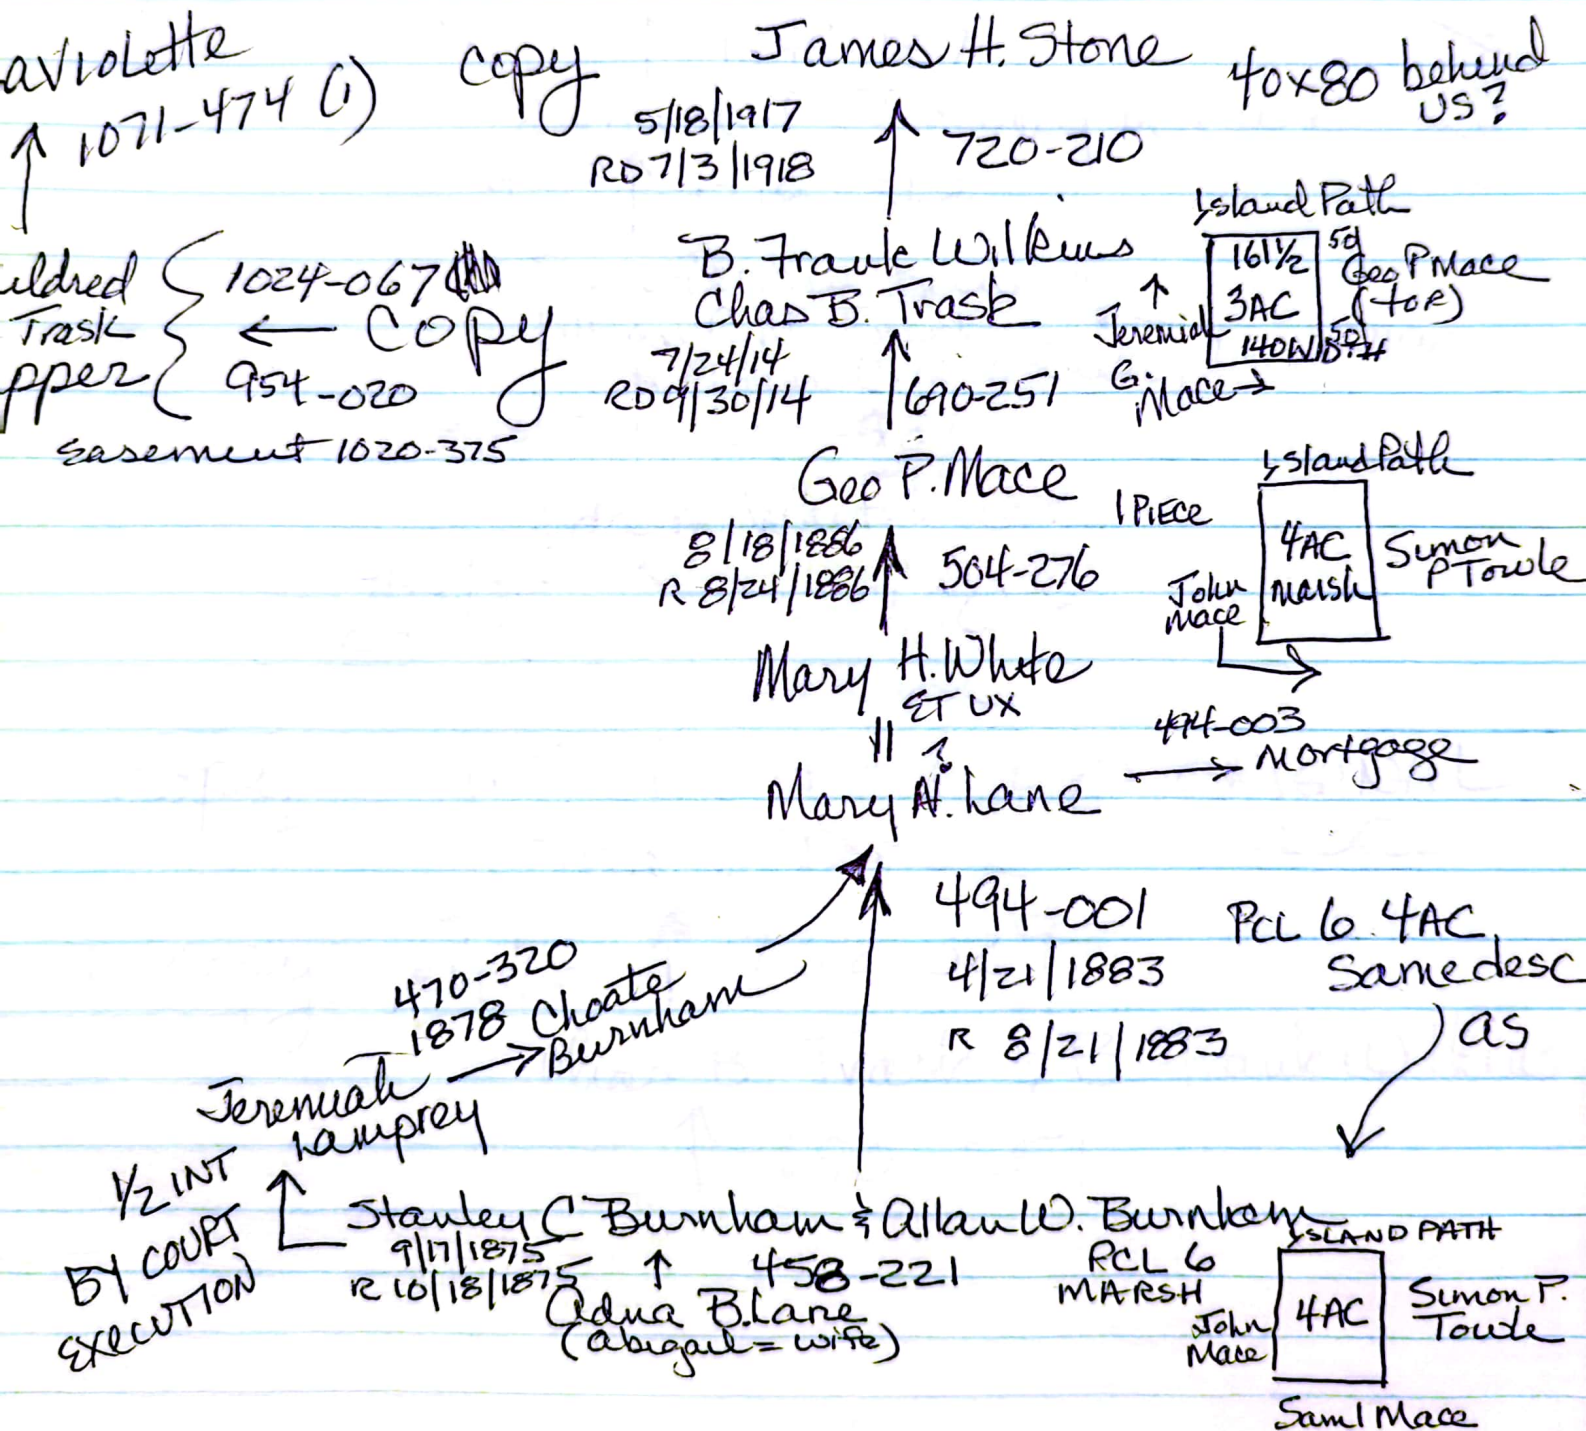 aviolette
1071-474 (1)
Copy
James H. Stone
40x80 behind
US?
5/18/1917
RD 7/3/1918
720-210
Island Path
ildred
Trask
pper
1024-067
← Copy
954-020
Easement 1020-375
B. Frank Wilkins
Chas B. Trask
7/24/14
RD 9/30/14
690-251
Jeremiah
G.
Mace →
161½
3AC
140 WIDTH
50
Geo P Mace
(for)
50
Geo P. Mace
1 PIECE
Island Path
4AC
Marsh
Simon
P Towle
John
Mace
8/18/1886
R 8/24/1886
504-276
Mary H. White
ET UX
?
Mary A. Lane
494-003
Mortgage
494-001
4/21/1883
R 8/21/1883
PCL 6. 4AC
Same desc
as
470-320
1878
Choate
Burnham
Jeremiah
Lamprey
1/2 INT
BY COURT
EXECUTION
Stanley C Burnham & Allan W. Burnham
9/17/1875
R 10/18/1875
458-221
Adna B. Lane
(Abigail = wife)
PCL 6
MARSH
ISLAND PATH
4AC
John
Mace
Simon P.
Towle
Saml Mace